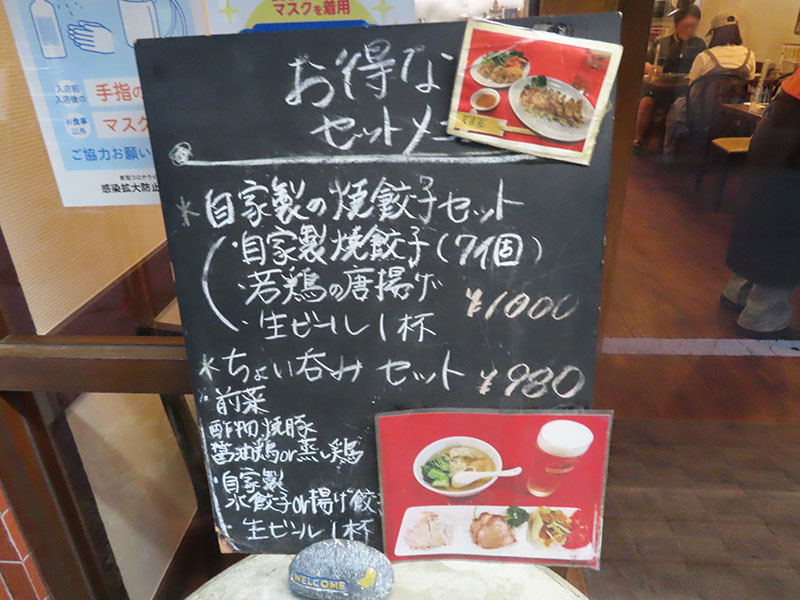 マスクを着用
入店前
入店後の
手指の
お食事
以外
マスク
ご協力お願い
新型コロナウイ
感染拡大防止
お得な
セットメニ
*自家製の焼餃子セット
・自家製焼餃子(7個)
・若鶏の唐揚げ
¥1000
・生ビール1杯
*ちょい呑みセット ¥980
・前菜
酢物 焼豚
醤油鶏or蒸し鶏
・自家製
水餃子or揚げ餃子
・生ビール1杯
WELCOME